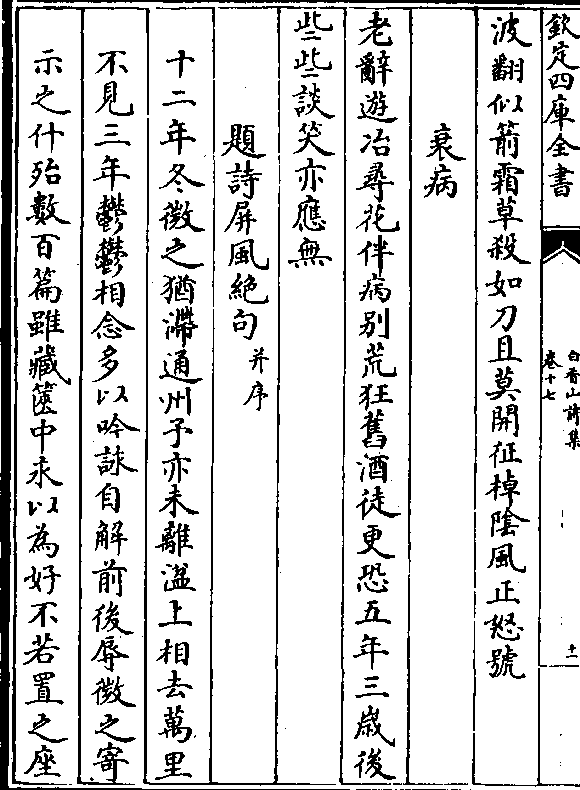 欽定四庫全書
白香山詩集
卷十七
十一
波翻似箭霜草殺如刀且莫開征棹陰風正怒號
衰病
老辭遊冶尋花伴病别荒狂舊酒徒更恐五年三嵗後
些些談笑亦應無
題詩屏風絶句并序
十二年冬微之猶滯通州予亦未離湓上相去萬里
不見三年鬱鬱相念多以吟詠自解前後辱微之寄
示之什殆數百篇雖藏篋中永以為好不若置之座